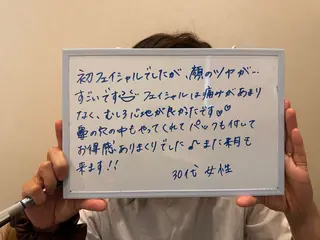 初フェイシャルでしたが、顔のツヤが…
すごいです フェイシャルは痛みがあまり
なく、むしろ心地が良かったです♡♡
鼻の穴の中もやってくれてパックも付いて
お得感ありまくりでした♪また来月も
来ます!!
30代 女性